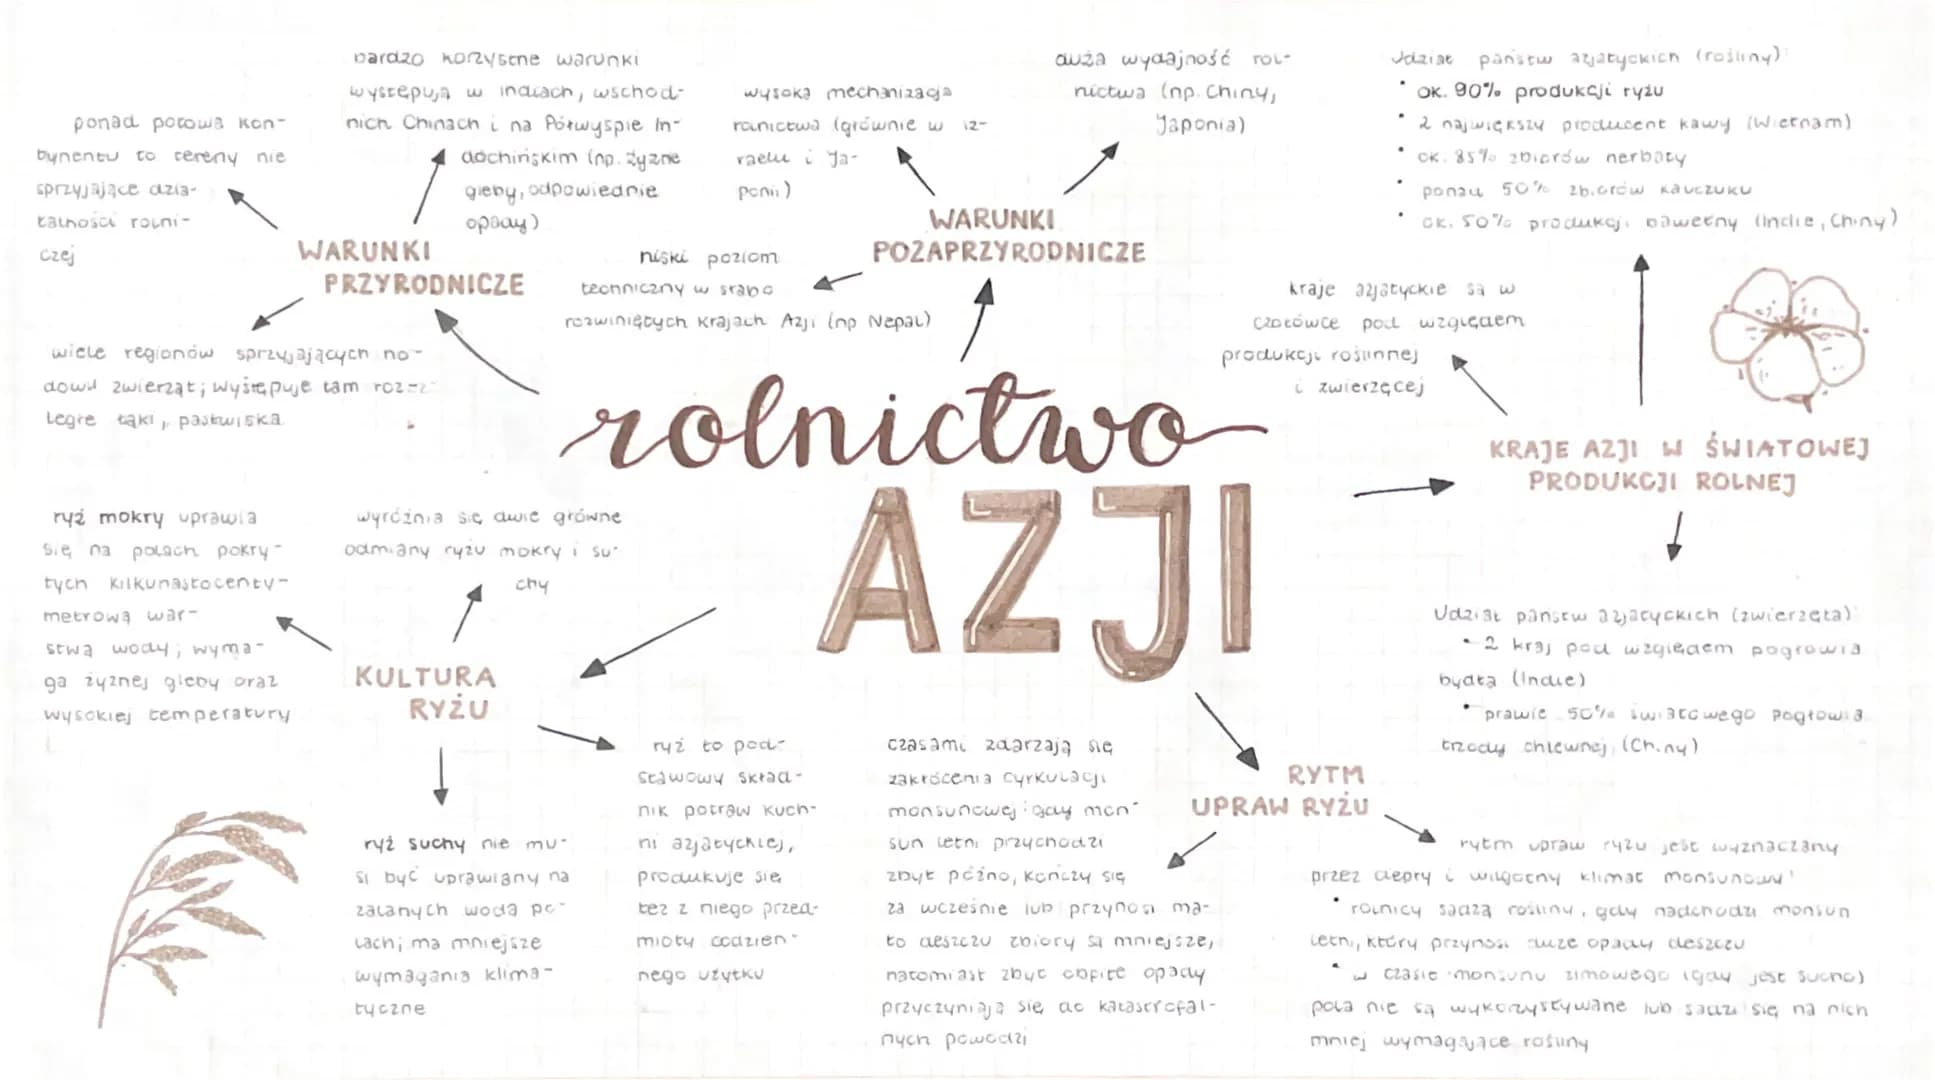 rolnictwo
AZJI
WARUNKI
PRZYRODNICZE
ponad połowa kon-
tynentu to tereny nie
sprzyjające dzia-
łalności rolni-
czej
bardzo korzystne warunki
występują w Indiach, wschod-
nich Chinach i na Półwyspie In-
dochińskim (np. żyzne
gleby, odpowiednie
opady)
wiele regionów sprzyjających ho-
dowli zwierząt; występuje tam roz-
ległe łąki, pastwiska
WARUNKI
POZAPRZYRODNICZE
wysoka mechanizacja
rolnictwa (głównie w Iz-
raelu i Ja-
ponii)
duża wydajność rol-
nictwa (np. Chiny,
Japonia)
niski poziom
techniczny w słabo
rozwiniętych krajach Azji (np Nepal)
KRAJE AZJI W ŚWIATOWEJ
PRODUKCJI ROLNEJ
kraje azjatyckie są w
czołówce pod względem
produkcji roślinnej
i zwierzęcej
Udział państw azjatyckich (rośliny):
• ok. 90% produkcji ryżu
• 2 największy producent kawy (Wietnam)
• ok. 85% zbiorów herbaty
• ponad 50% zbiorów kauczuku
• ok. 50% produkcji bawełny (Indie, Chiny)
Udział państw azjatyckich (zwierzęta):
• 2 kraj pod względem pogłowia
bydła (Indie)
• prawie 50% światowego pogłowia
trzody chlewnej (Chiny)
KULTURA
RYŻU
ryż mokry uprawia
się na polach pokry-
tych kilkunastocenty-
metrową war-
stwą wody; wyma-
ga żyznej gleby oraz
wysokiej temperatury
wyróżnia się dwie główne
odmiany ryżu mokry i su-
chy
ryż suchy nie mu-
si być uprawiany na
zalanych wodą po-
lach; ma mniejsze
wymagania klima-
tyczne
ryż to pod-
stawowy skład-
nik potraw kuch-
ni azjatyckiej,
produkuje się
też z niego przed-
mioty codzien-
nego użytku
RYTM
UPRAW RYŻU
czasami zdarzają się
zakłócenia cyrkulacji
monsunowej: gdy mon-
sun letni przychodzi
zbyt późno, kończy się
za wcześnie lub przynosi ma-
ło deszczu zbiory są mniejsze,
natomiast zbyt obfite opady
przyczyniają się do katastrofal-
nych powodzi
rytm upraw ryżu jest wyznaczany
przez ciepły i wilgotny klimat monsunowy:
• rolnicy sadzą rośliny, gdy nadchodzi monsun
letni, który przynosi duże opady deszczu
• w czasie monsunu zimowego (gdy jest sucho)
pola nie są wykorzystywane lub sadzi się na nich
mniej wymagające rośliny